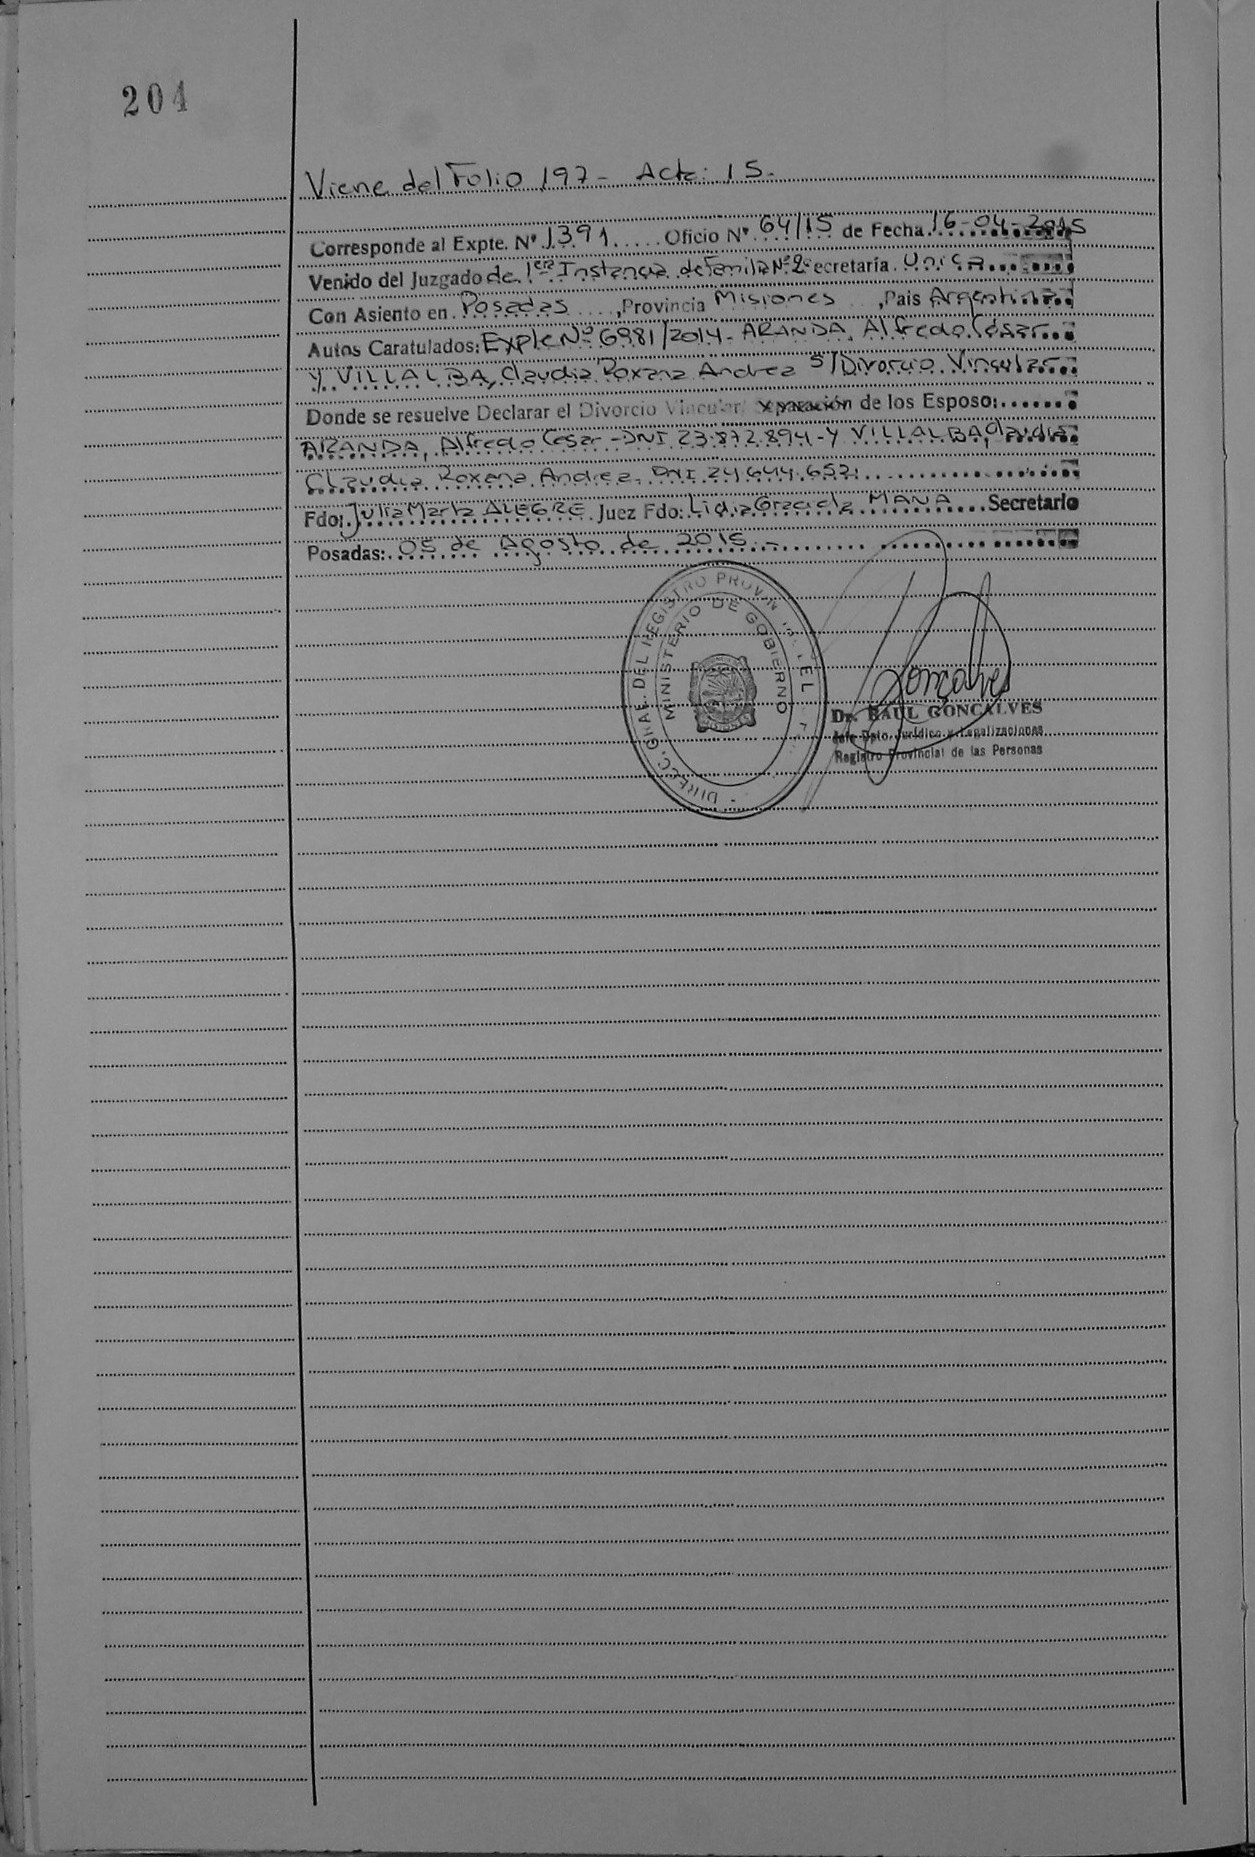 204
Viene del Folio 197 - Acta: 15.
Corresponde al Expte. Nº 1391 Oficio Nº 64/15 de Fecha 16-04-2015
Venido del Juzgado de 1era Instancia de Familia Nº 2 ecretaría Unica
Con Asiento en Posadas, Provincia Misiones, País Argentina
Autos Caratulados: Expte Nº 6981/2014 - ARANDA, Alfredo César
y VILLALBA, Claudia Roxana Andrea S/Divorcio Vincular
Donde se resuelve Declarar el Divorcio Vincular/ Separación de los Esposo:
ARANDA, Alfredo Cesar - DNI 23.872.894 - y VILLALBA, Claudia
Claudia Roxana Andrea, DNI 24.644.652
Fdo: Julia Marta ALEGRE Juez Fdo: Lidia Graciela MANA Secretario
Posadas: 05 de Agosto de 2015.-
DIRECC. GRAL. DEL REGISTRO PROVINCIAL DE L
MINISTERIO DE GOBIERNO
Goncalves
Dr. RAUL GONCALVES
Jefe Dpto. Jurídico y Legalizaciones
Registro Provincial de las Personas